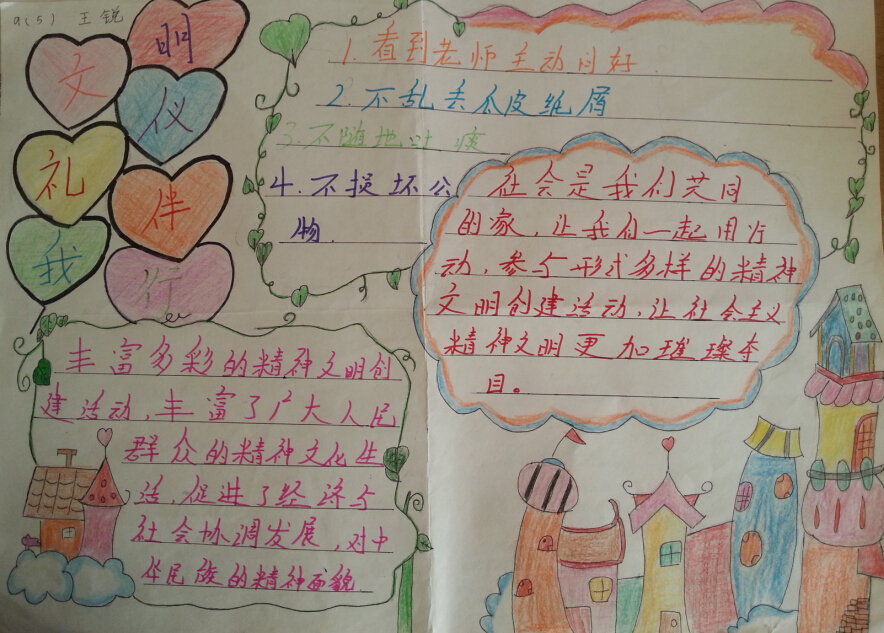 9(5) 王锐
文明
仪礼
伴我
行
1.看到老师主动问好
2.不乱丢瓜皮纸屑
3.不随地吐痰
4.不损坏公
物.
社会是我们共同
的家,让我们一起用行
动,参与形式多样的精神
文明创建活动,让社会主义
精神文明更加璀璨夺
目。
丰富多彩的精神文明创
建活动,丰富了广大人民
群众的精神文化生
活,促进了经济与
社会协调发展,对中
华民族的精神面貌